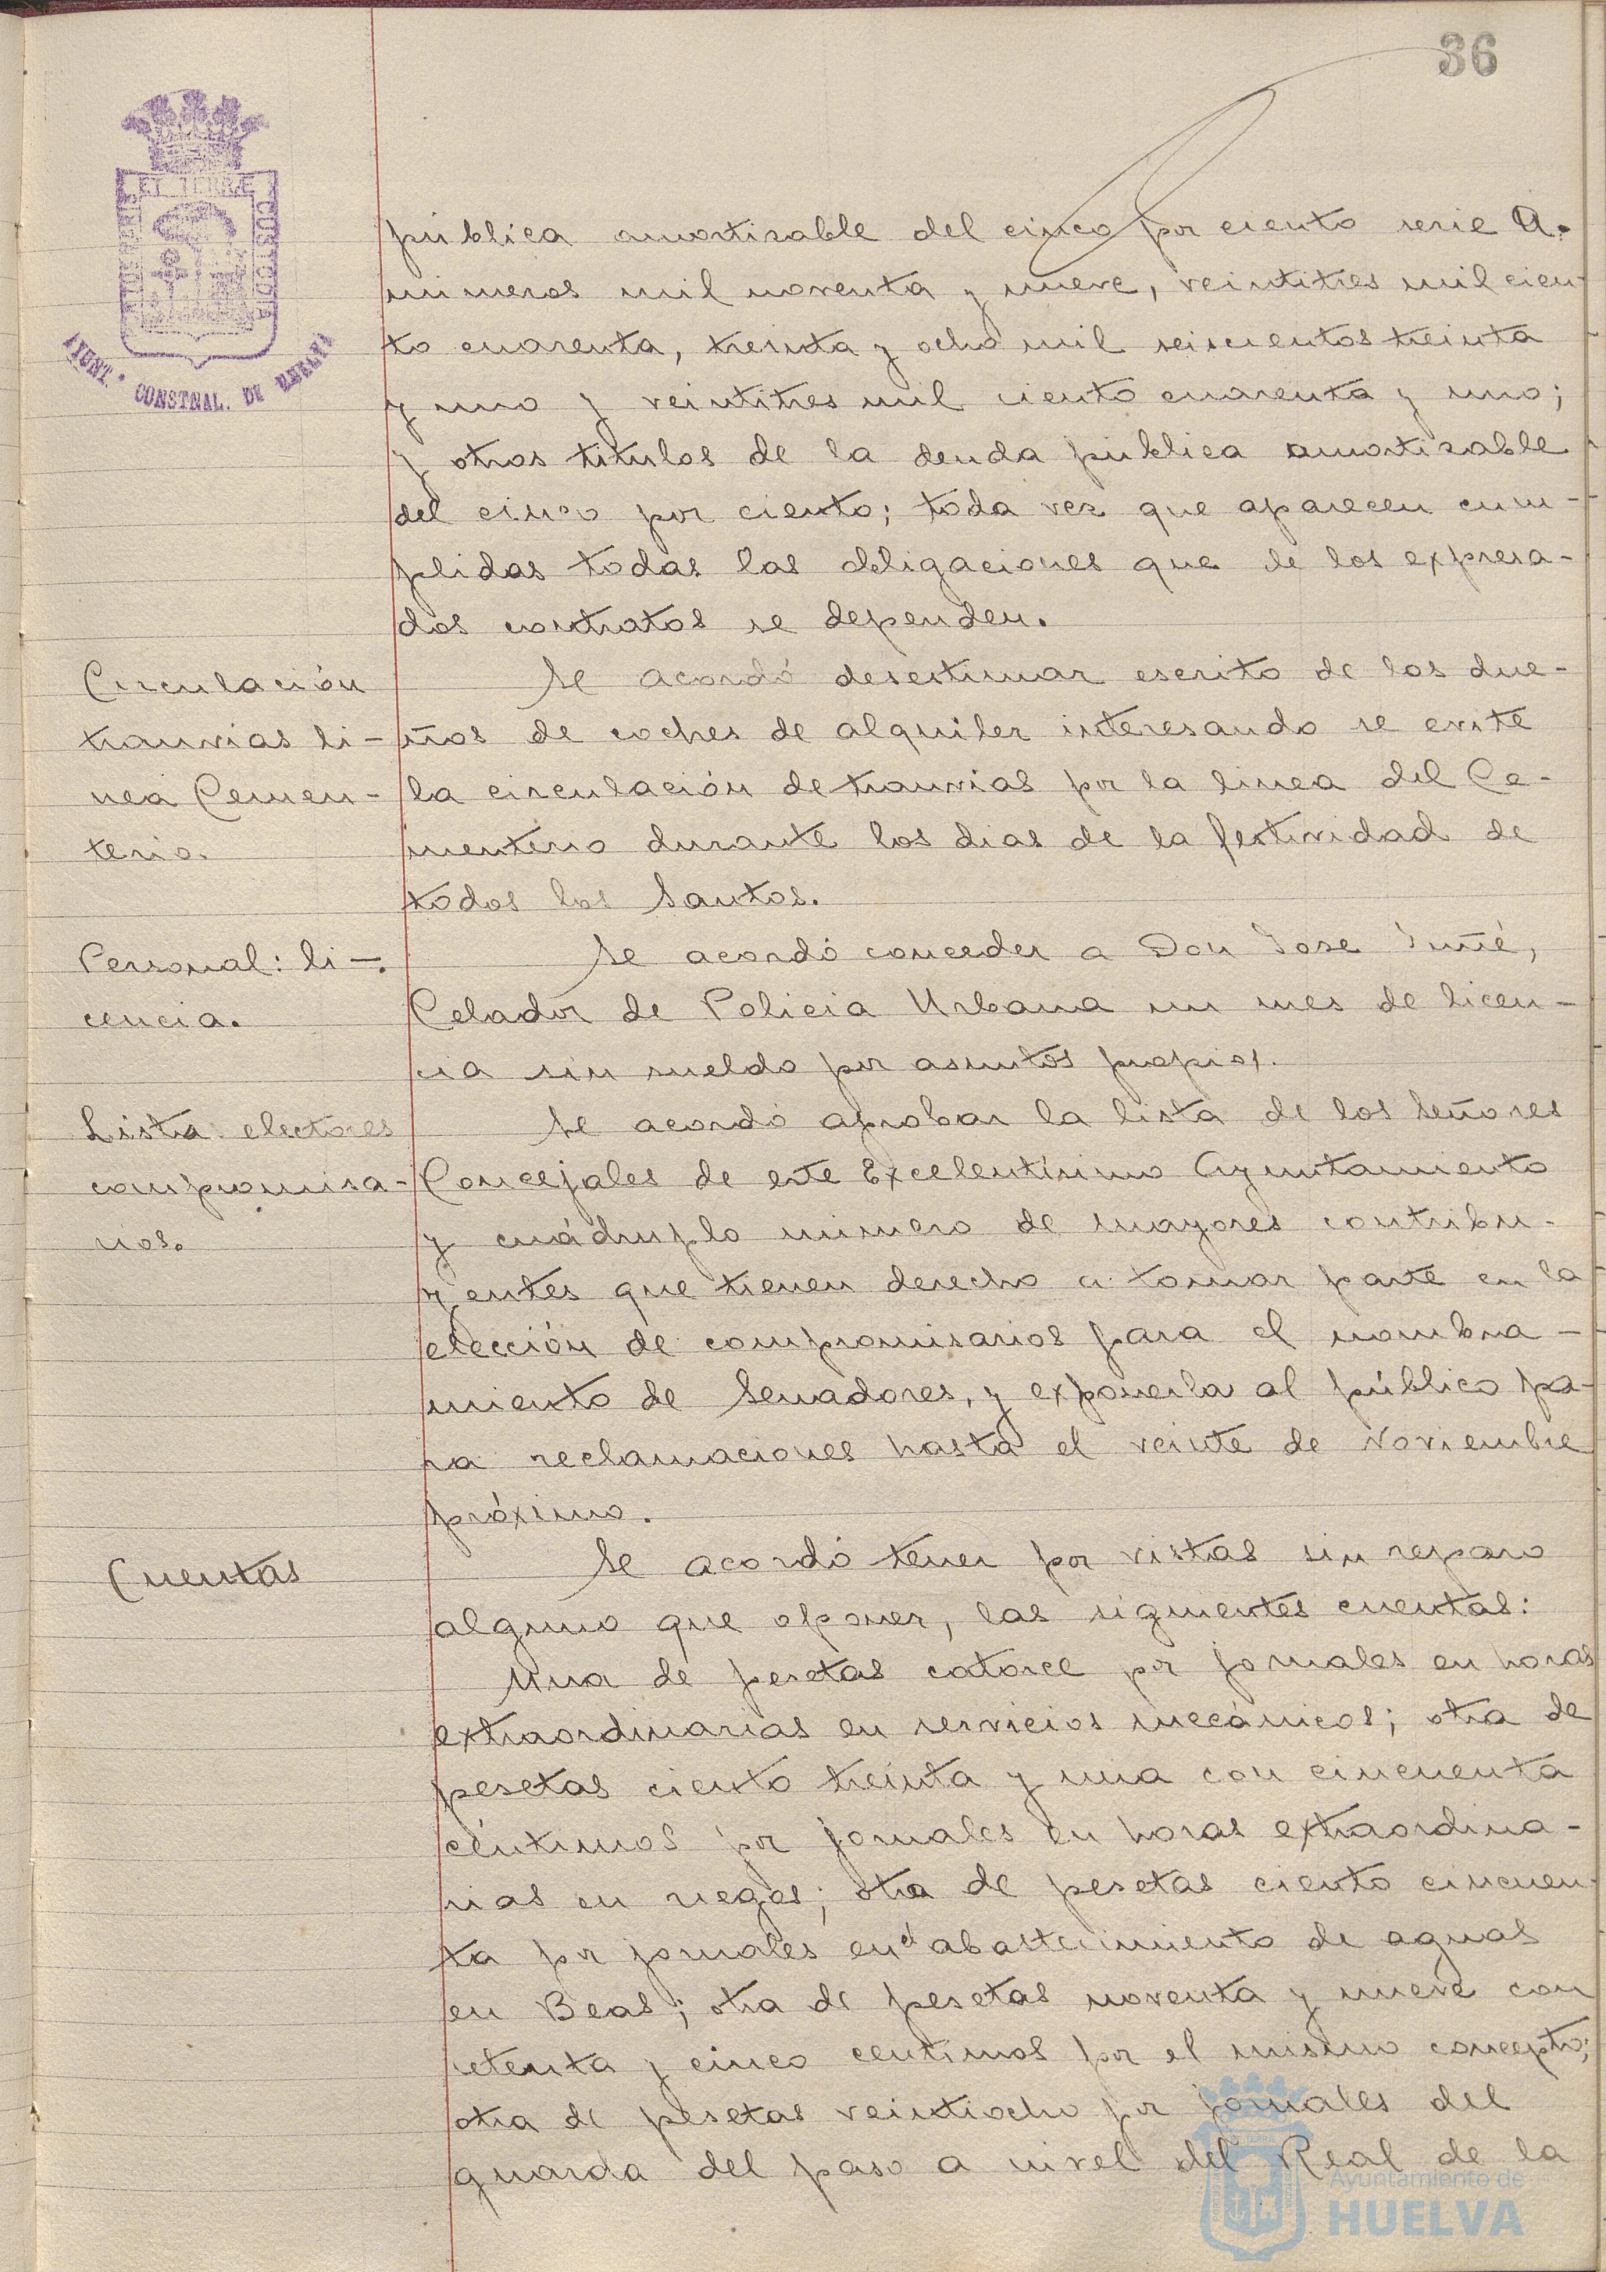 36
PORTUS MARIS ET TERRÆ CUSTODIA
AYUNT.º CONSTNAL. DE HUELVA
pública amortisable del cinco por ciento serie A.
números mil noventa y nueve, veintitres mil cien-
to cuarenta, treinta y ocho mil seiscientos treinta
y uno y veintitres mil ciento cuarenta y uno;
y otros titulos de la deuda pública amortisable
del cinco por ciento; toda vez que aparecen cum-
plidas todas las obligaciones que de los expresa-
dos contratos se dependen.
Circulación
tranvias li-
nea Cemen-
terio.
Se acordó desestimar escrito de los due-
ños de coches de alquiler interesando se evite
la circulación de tranvias por la linea del Ce-
menterio durante los dias de la festividad de
todos los Santos.
Personal: li-
cencia.
Se acordó conceder a Don Jose
Celador de Policia Urbana un mes de licen-
cia sin sueldo por asuntos propios.
Lista electores
compromisa-
rios.
Se acordó aprobar la lista de los Señores
Concejales de este Excelentísimo Ayuntamiento
y cuádruplo número de mayores contribu-
yentes que tienen derecho a tomar parte en la
elección de compromisarios para el nombra-
miento de Senadores, y exponerla al público pa-
ra reclamaciones hasta el veinte de Noviembre
próximo.
Cuentas
Se acordó tener por vistas sin reparo
alguno que oponer, las siguientes cuentas:
Una de pesetas catorce por jornales en horas
extraordinarias en servicios mecánicos; otra de
pesetas ciento treinta y una con cincuenta
céntimos por jornales en horas extraordina-
rias en riegos; otra de pesetas ciento cincuen-
ta por jornales en el abastecimiento de aguas
en Beas; otra de pesetas noventa y nueve con
setenta y cinco centimos por el mismo concepto;
otra de pesetas veintiocho por jornales del
guarda del paso a nivel del Real de la
Ayuntamiento de
HUELVA